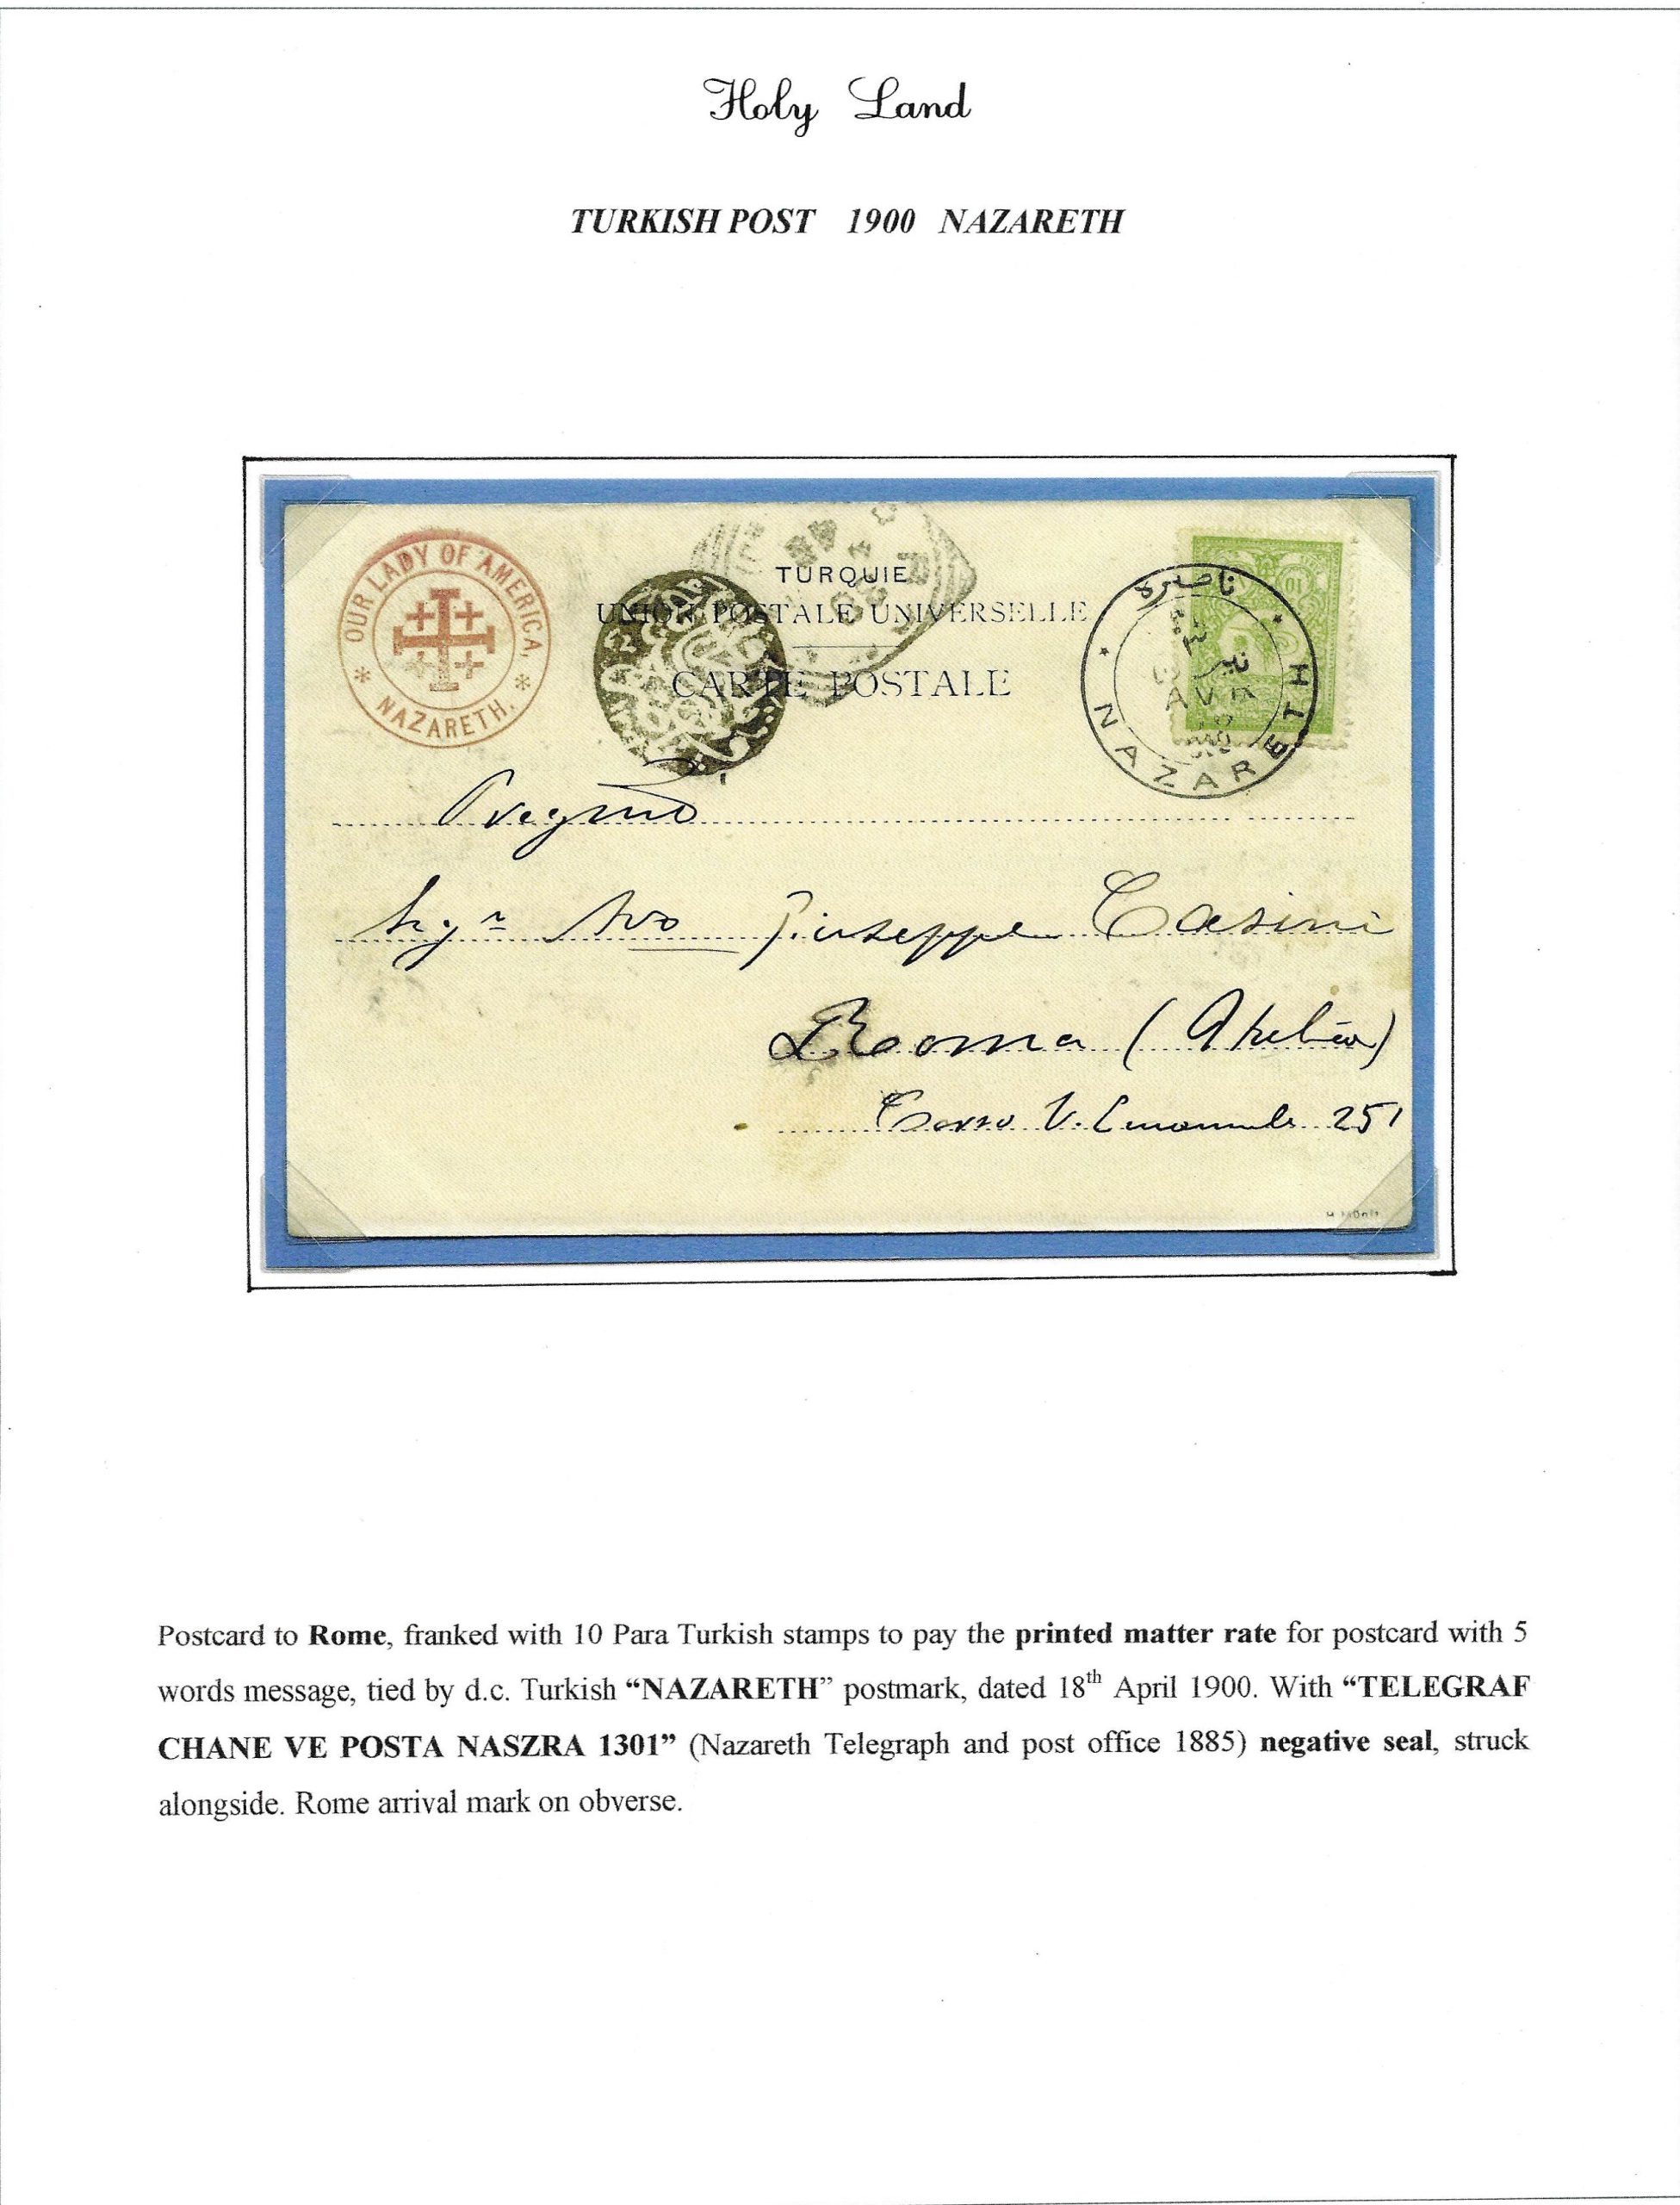 Holy Land
TURKISH POST 1900 NAZARETH
OUR LADY OF AMERICA,
* NAZARETH. *
TURQUIE
UNION POSTALE UNIVERSELLE
CARTE POSTALE
ناصره
10
NAZARETH
Giuseppe Casini
Roma (Italia)
Corso V. Emanuele 251
Postcard to Rome, franked with 10 Para Turkish stamps to pay the printed matter rate for postcard with 5
words message, tied by d.c. Turkish “NAZARETH” postmark, dated 18th April 1900. With “TELEGRAF
CHANE VE POSTA NASZRA 1301” (Nazareth Telegraph and post office 1885) negative seal, struck
alongside. Rome arrival mark on obverse.